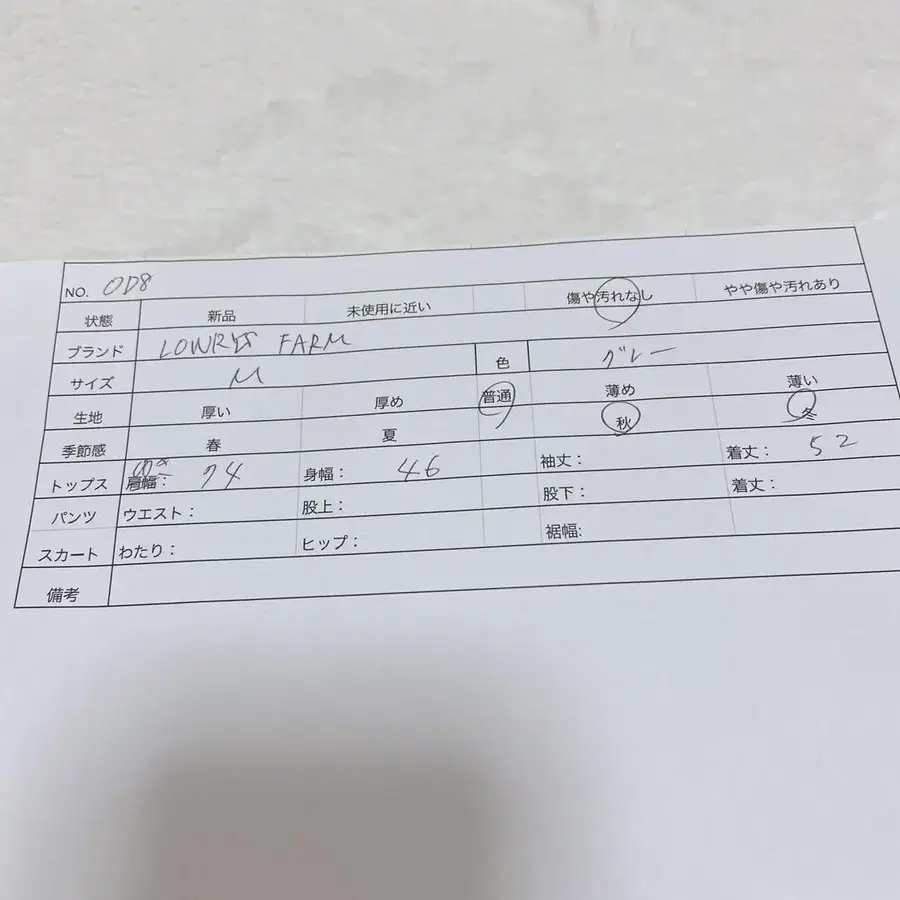 NO. OD8
状態 新品 未使用に近い 傷や汚れなし やや傷や汚れあり
ブランド LOWRYS FARM
サイズ M 色 グレー
生地 厚い 厚め 普通 薄め 薄い
季節感 春 夏 秋 冬
トップス 肩幅： 74 身幅： 46 袖丈： 着丈： 52
パンツ ウエスト： 股上： 股下： 着丈：
スカート わたり： ヒップ： 裾幅:
備考